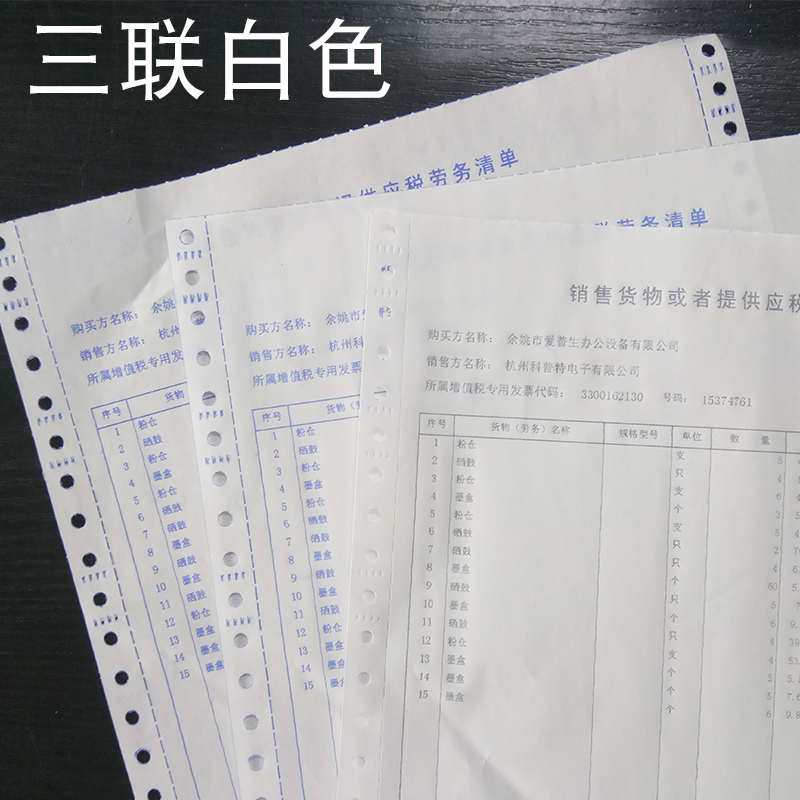 三联白色
提供应税劳务清单
购买方名称： 余姚
销售方名称： 杭州
所属增值税专用发
序号 货物
1 粉仓
2 硒鼓
3 粉仓
4 墨盒
5 粉仓
6 硒鼓
7 硒鼓
8 墨盒
9 硒鼓
10 墨盒
11 硒鼓
12 粉仓
13 墨盒
14 墨盒
15 墨盒
税劳务清单
购买方名称： 余姚市
销售方名称： 杭州科
所属增值税专用发票
序号 货物（劳
1 粉仓
2 硒鼓
3 粉仓
4 墨盒
5 粉仓
6 硒鼓
7 硒鼓
8 墨盒
9 硒鼓
10 墨盒
11 硒鼓
12 粉仓
13 墨盒
14 墨盒
15 墨盒
销售货物或者提供应税
购买方名称： 余姚市爱普生办公设备有限公司
销售方名称： 杭州科普特电子有限公司
所属增值税专用发票代码： 3300162130 号码： 15374761
序号 货物（劳务）名称 规格型号 单位 数 量
1 粉仓 支 5
2 硒鼓 只 4
3 粉仓 支 6
4 墨盒 个 3
5 粉仓 支 5
6 硒鼓 只 2
7 硒鼓 只 4
8 墨盒 个 60
9 硒鼓 只 5
10 墨盒 个 6
11 硒鼓 只 4
12 粉仓 支 4
13 墨盒 个 5
14 墨盒 个 5
15 墨盒 个 6